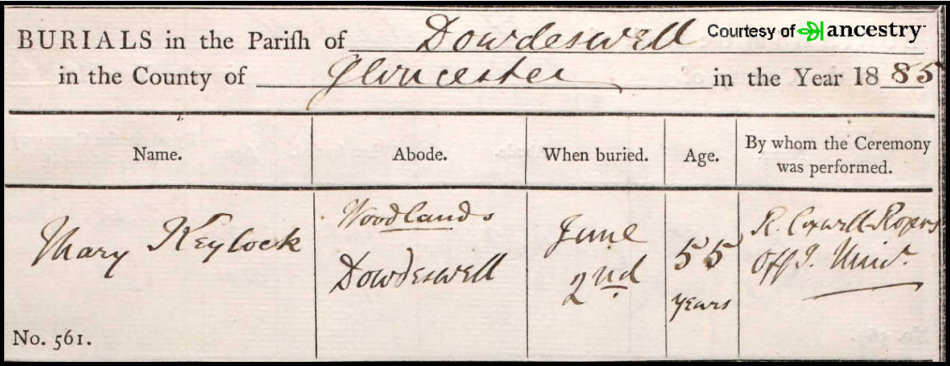 BURIALS in the Pariſh of Dowdeswell Courtesy of ancestry
in the County of Gloucester in the Year 1885
Name. Abode. When buried. Age. By whom the Ceremony was performed.
Mary Keylock
Woodlands
Dowdeswell
June
2nd
55
years
R. Coxwell-Rogers
Offg. Minr.
No. 561.